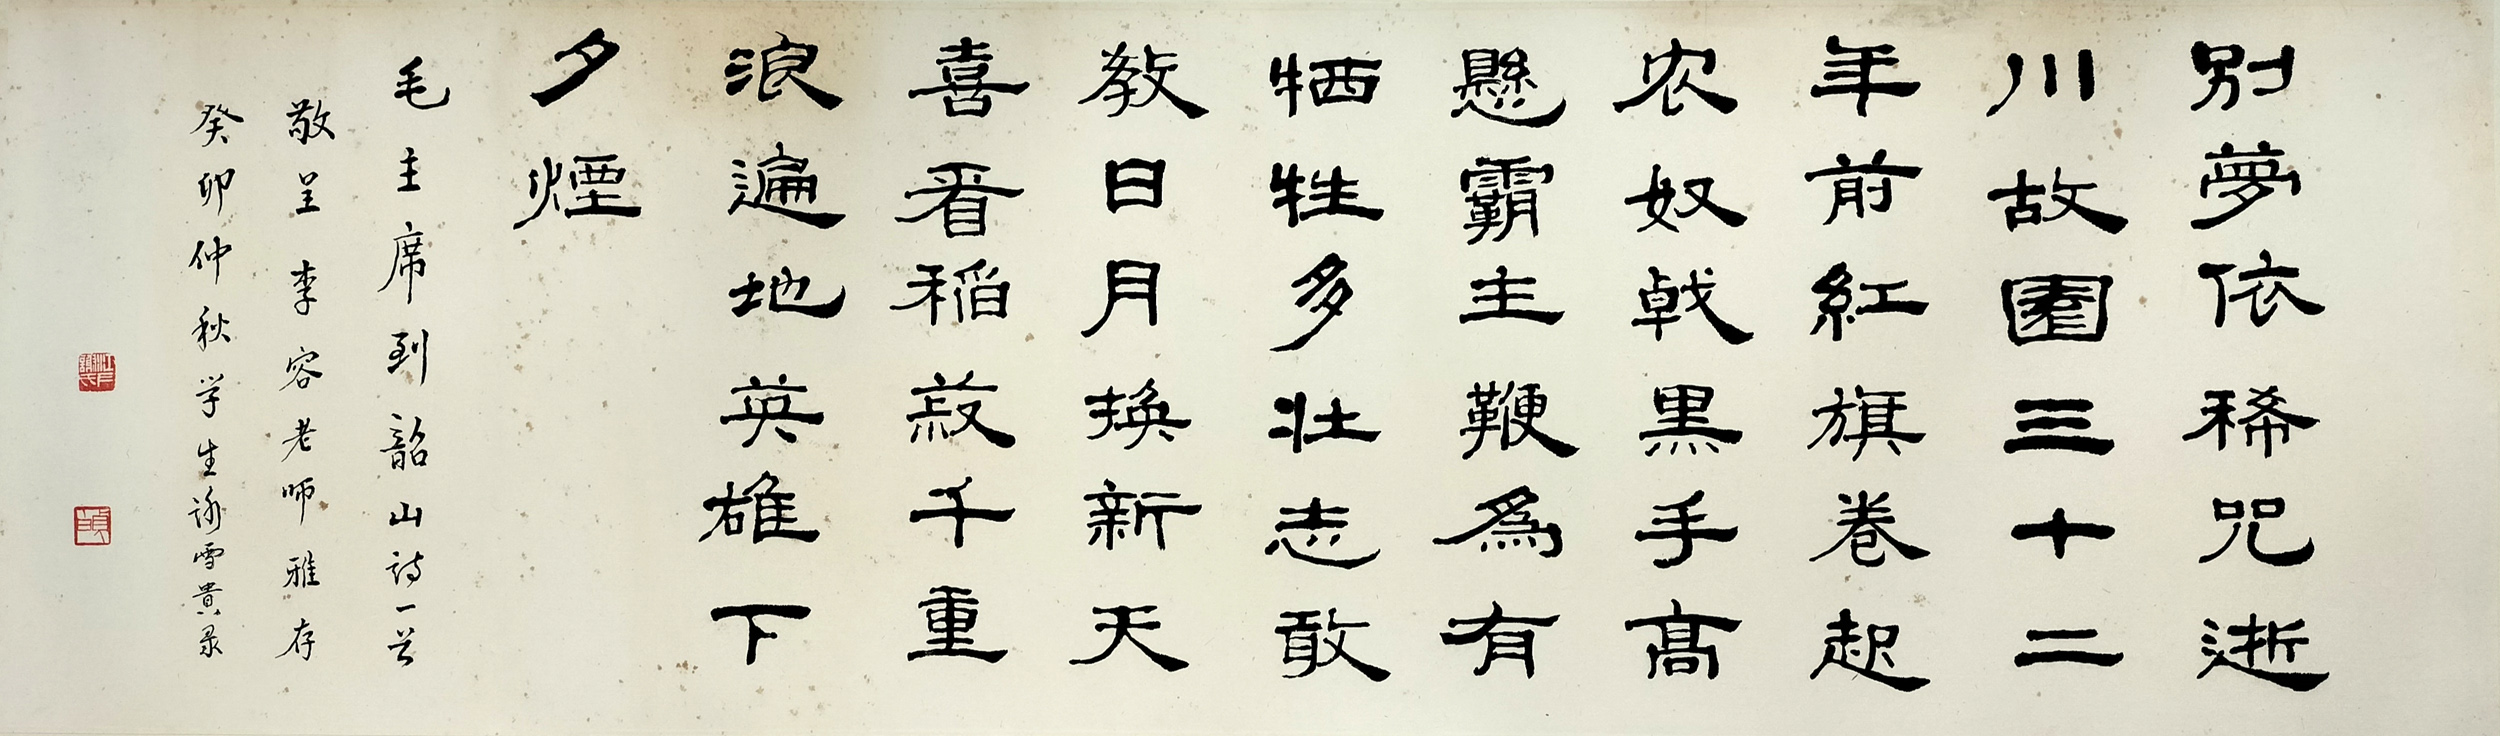 别夢依稀咒逝
川故園三十二
年前紅旗卷起
农奴戟黑手高
懸霸主鞭為有
牺牲多壮志敢
教日月换新天
喜看稻菽千重
浪遍地英雄下
夕煙
毛主席到韶山詩一首
敬呈李容老师雅存
癸卯仲秋学生谢雪贵录